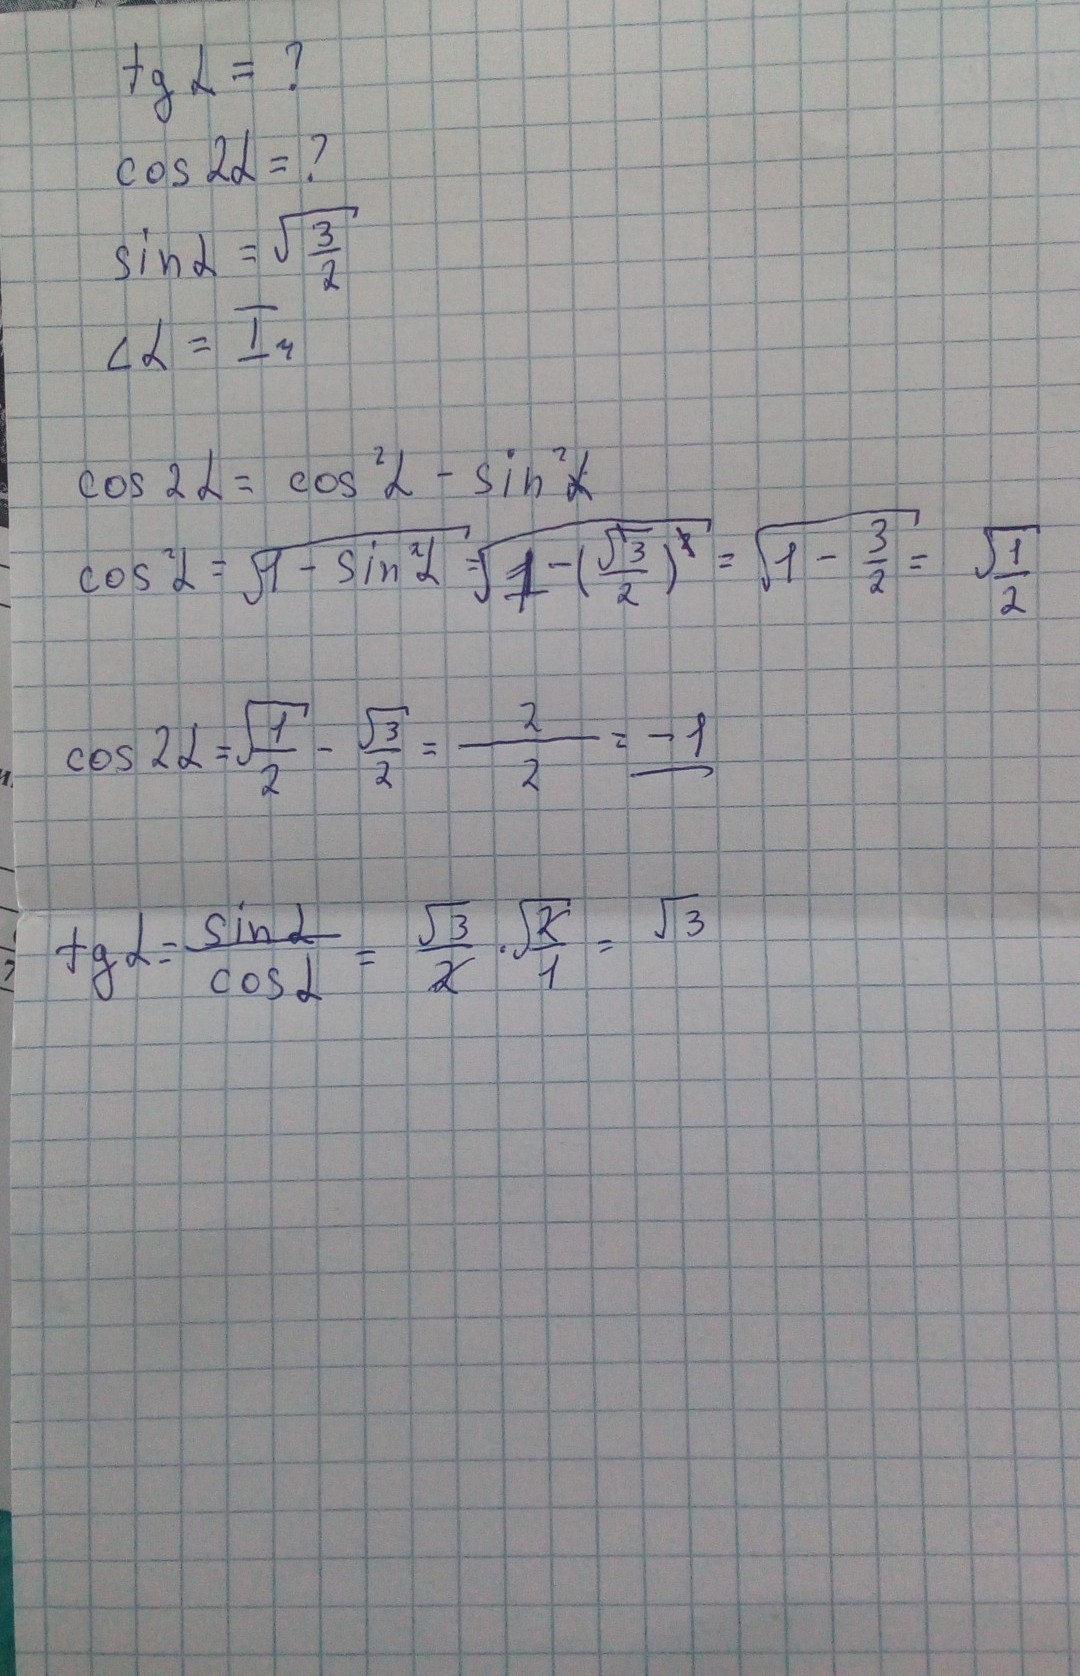 tg α = ?
cos 2α = ?
sin α = √(3/2)
∠α = I ч
cos 2α = cos²α - sin²α
cos²α = √(1 - sin²α) = √(1 - (√3/2)²) = √(1 - 3/2) = √(1/2)
cos 2α = √1/2 - √3/2 = - 2/2 = -1
tg α = sin α/cos α = √3/2 · √2/1 = √3